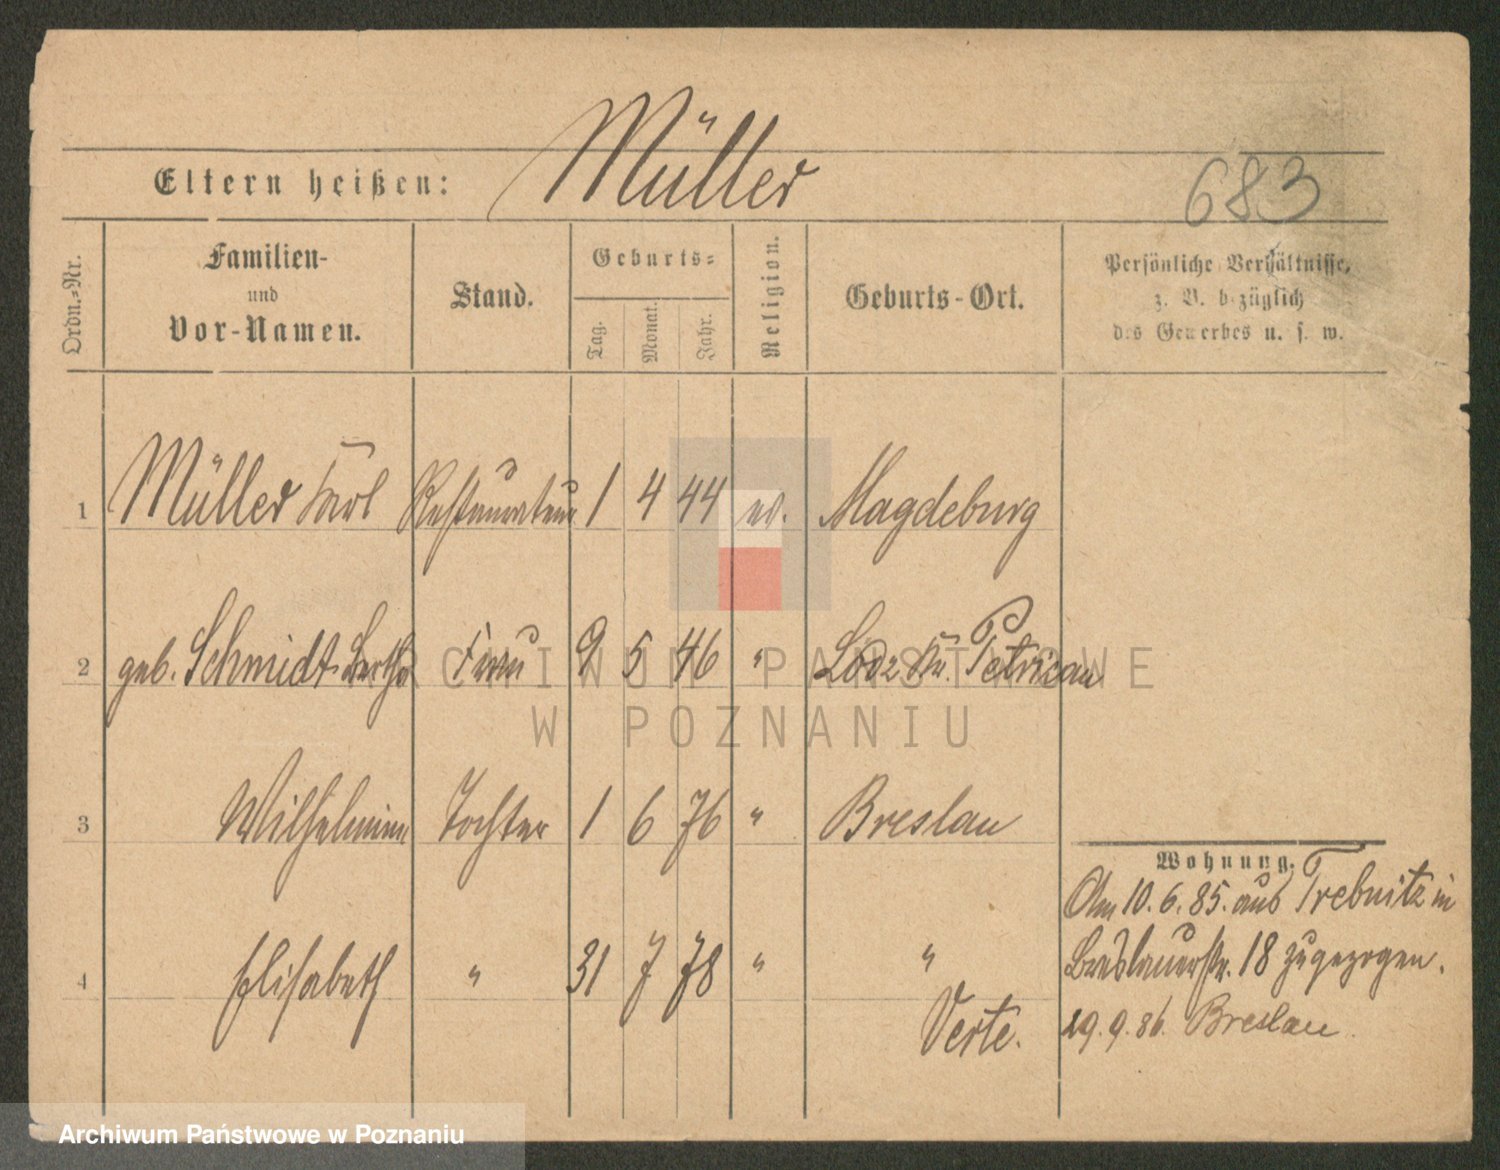 Müller
Eltern heißen:
683
Ordn.-Nr.
Familien-
und
Vor-Namen.
Stand.
Geburts-
Tag.
Monat.
Jahr.
Religion.
Geburts-Ort.
Persönliche Verhältnisse,
z. B. bezüglich
des Gewerbes u. s. w.
1 Müller Karl Restaurateur 1 4 44 ev. Magdeburg
2 geb. Schmidt Bertha Frau 9 5 46 " Lodz Kr. Petricau
3 Wilhelmine Tochter 1 6 76 " Breslau
Wohnung.
Am 10. 6. 85. aus Trebnitz in
4 Elisabeth " 31 7 78 " " Breslauerstr. 18 zugezogen.
Verte. 29. 9. 86. Breslau.
ARCHIWUM PAŃSTWOWE
W POZNANIU
Archiwum Państwowe w Poznaniu